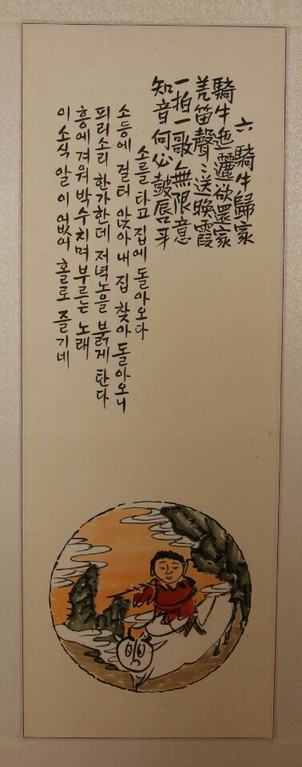 六 騎牛歸家
騎牛迤邐欲還家
羌笛聲〻送晚霞
一拍一歌無限意
知音何必鼓唇牙
소를 타고 집에 돌아오다
소등에 걸터 앉아 내 집 찾아 돌아오니
피리소리 한가한데 저녁노을 붉게 탄다
흥에 겨워 박수치며 부르는 노래
이 소식 알 이 없어 홀로 즐기네